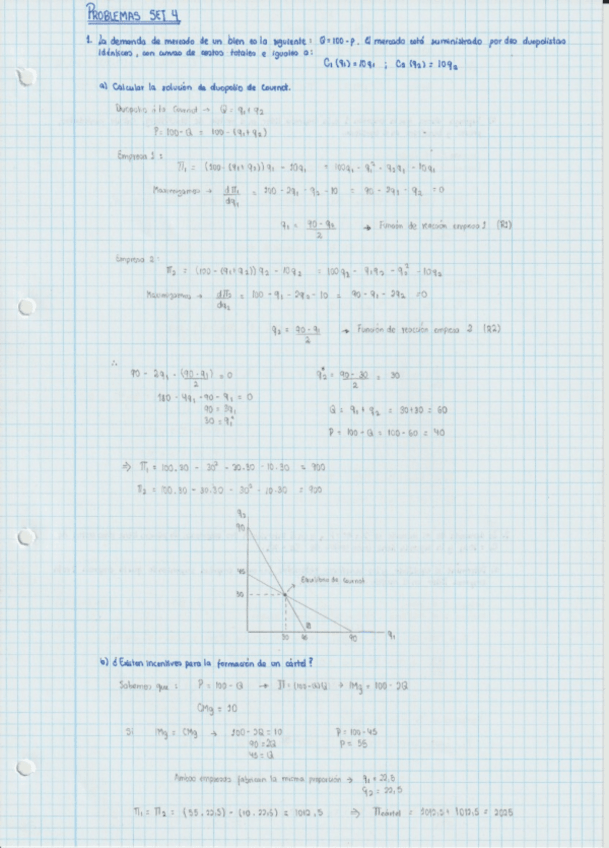 PROBLEMAS SET 4
1. La demanda de mercado de un bien es la siguiente: Q=100-p. El mercado está suministrado por dos duopolistas
idénticos, con curvas de costos totales e iguales a:
C₁(q₁)=10q₁ ; C₂(q₂)=10q₂
a) Calcular la solución de duopolio de Cournot.
Duopolio à la Cournot → Q = q₁+q₂
P=100-Q = 100-(q₁+q₂)
Empresa 1:
Π₁ = (100-(q₁+q₂))q₁ - 10q₁ = 100q₁ - q₁² - q₂q₁ - 10q₁
Maximizamos → dΠ₁/dq₁ = 100 - 2q₁ - q₂ - 10 = 90 - 2q₁ - q₂ = 0
q₁ = (90-q₂)/2 → Función de reacción empresa 1 (R1)
Empresa 2:
Π₂ = (100-(q₁+q₂))q₂ - 10q₂ = 100q₂ - q₁q₂ - q₂² - 10q₂
Maximizamos → dΠ₂/dq₂ = 100 - q₁ - 2q₂ - 10 = 90 - q₁ - 2q₂ = 0
q₂ = (90-q₁)/2 → Función de reacción empresa 2 (R2)
∴
90 - 2q₁ - (90-q₁)/2 = 0
q₂* = (90-30)/2 = 30
180 - 4q₁ - 90 - q₁ = 0
90 = 3q₁
Q = q₁ + q₂ = 30+30 = 60
30 = q₁*
P = 100-Q = 100-60 = 40
⇒ Π₁ = 100.30 - 30² - 30.30 - 10.30 = 900
Π₂ = 100.30 - 30.30 - 30² - 10.30 = 900
q₂
90
45
Equilibrio de Cournot
30
30 45 90 q₁
b) ¿Existen incentivos para la formación de un cártel?
Sabemos que: P = 100-Q → → IMg = 100-2Q
CMg = 10
Si IMg = CMg → 100-2Q=10 P=100-45
90=2Q P=55
45=Q
Ambas empresas fabrican la misma proporción → q₁=22,5
q₂=22,5
Π₁ = Π₂ = (55.22,5) - (10.22,5) = 1012,5 ⇒ Πcártel = 1012,5+1012,5 = 2025